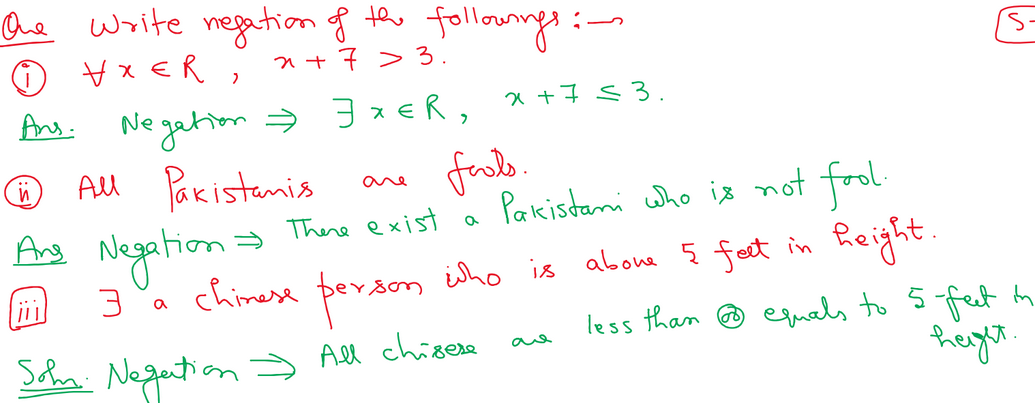 Que Write negation of the followings :–
(i) ∀ x ∈ R , x + 7 > 3.
Ans. Negation ⇒ ∃ x ∈ R , x + 7 ≤ 3.
(ii) All Pakistanis are fools.
Ans Negation ⇒ There exist a Pakistani who is not fool.
(iii) ∃ a chinese person who is above 5 feet in height.
Soln. Negation ⇒ All chinese are less than or equals to 5-feet in
height.